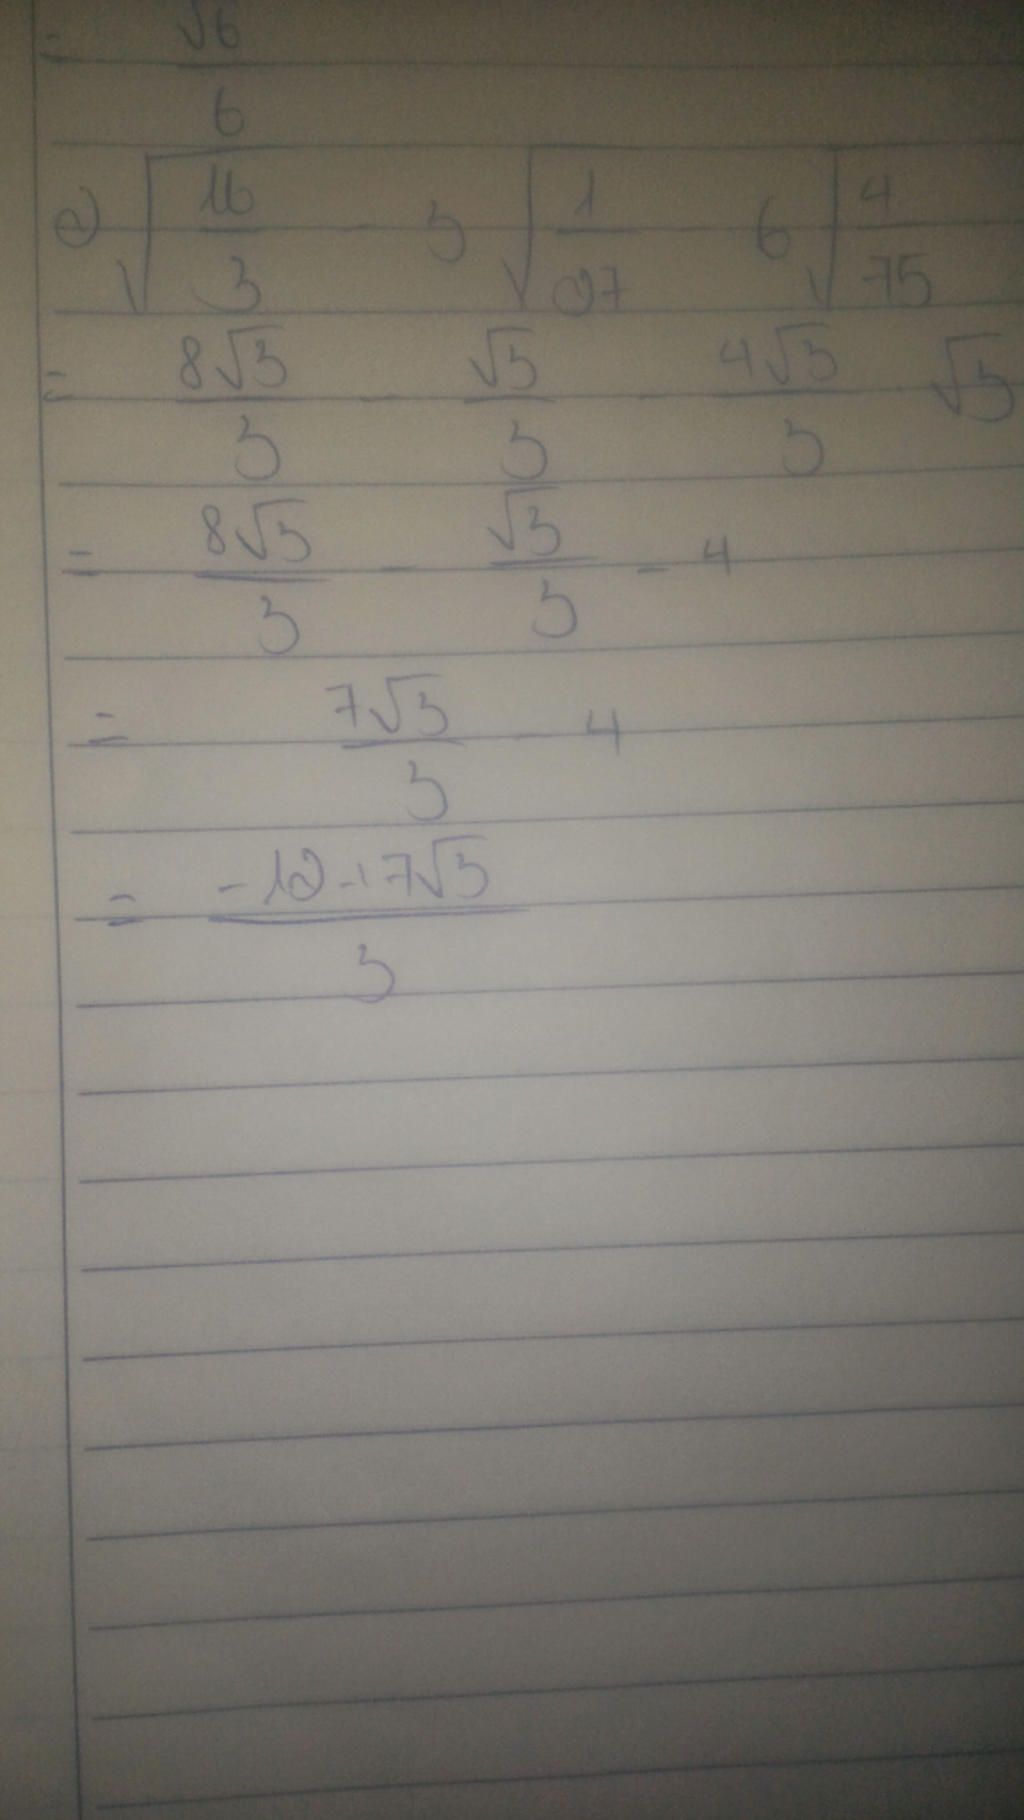 = √6/6
e) √(16/3) - 3√(1/27) 6√(4/75)
= 8√3/3 - √3/3 - 4√3/3 √3
= 8√3/3 - √3/3 - 4
= 7√3/3 - 4
= -12+7√3/3